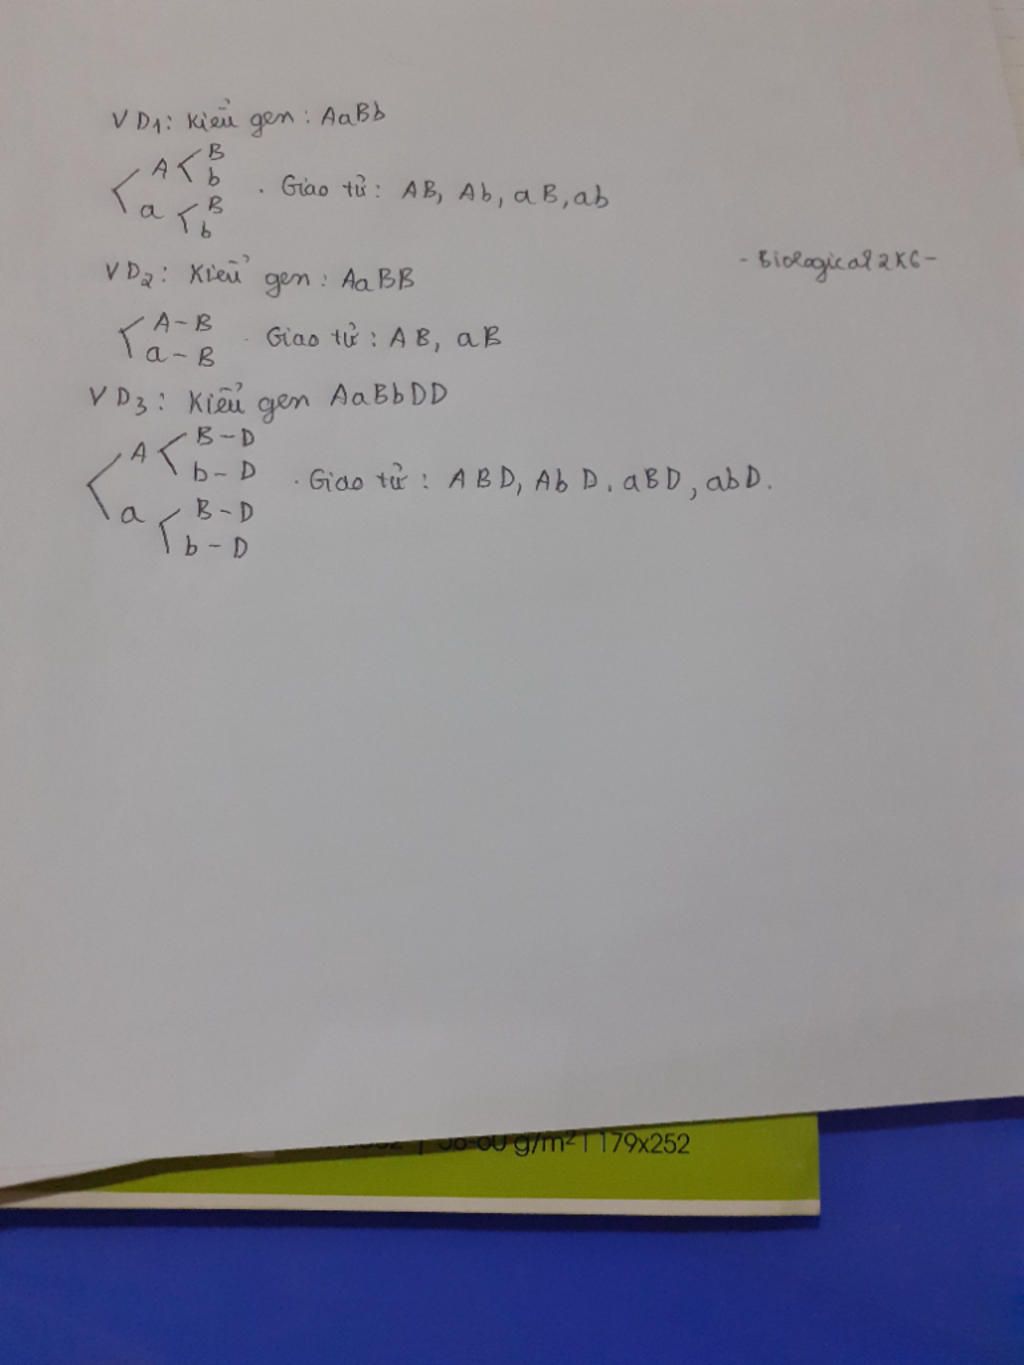 VD1: Kiểu gen: AaBb
A B
b
a B
b
. Giao tử: AB, Ab, aB, ab
VD2: Kiểu gen: AaBB
- Biological2K6 -
A - B
a - B
. Giao tử: AB, aB
VD3: Kiểu gen AaBbDD
A B - D
b - D
a B - D
b - D
. Giao tử: ABD, AbD, aBD, abD.
g/m² | 179x252